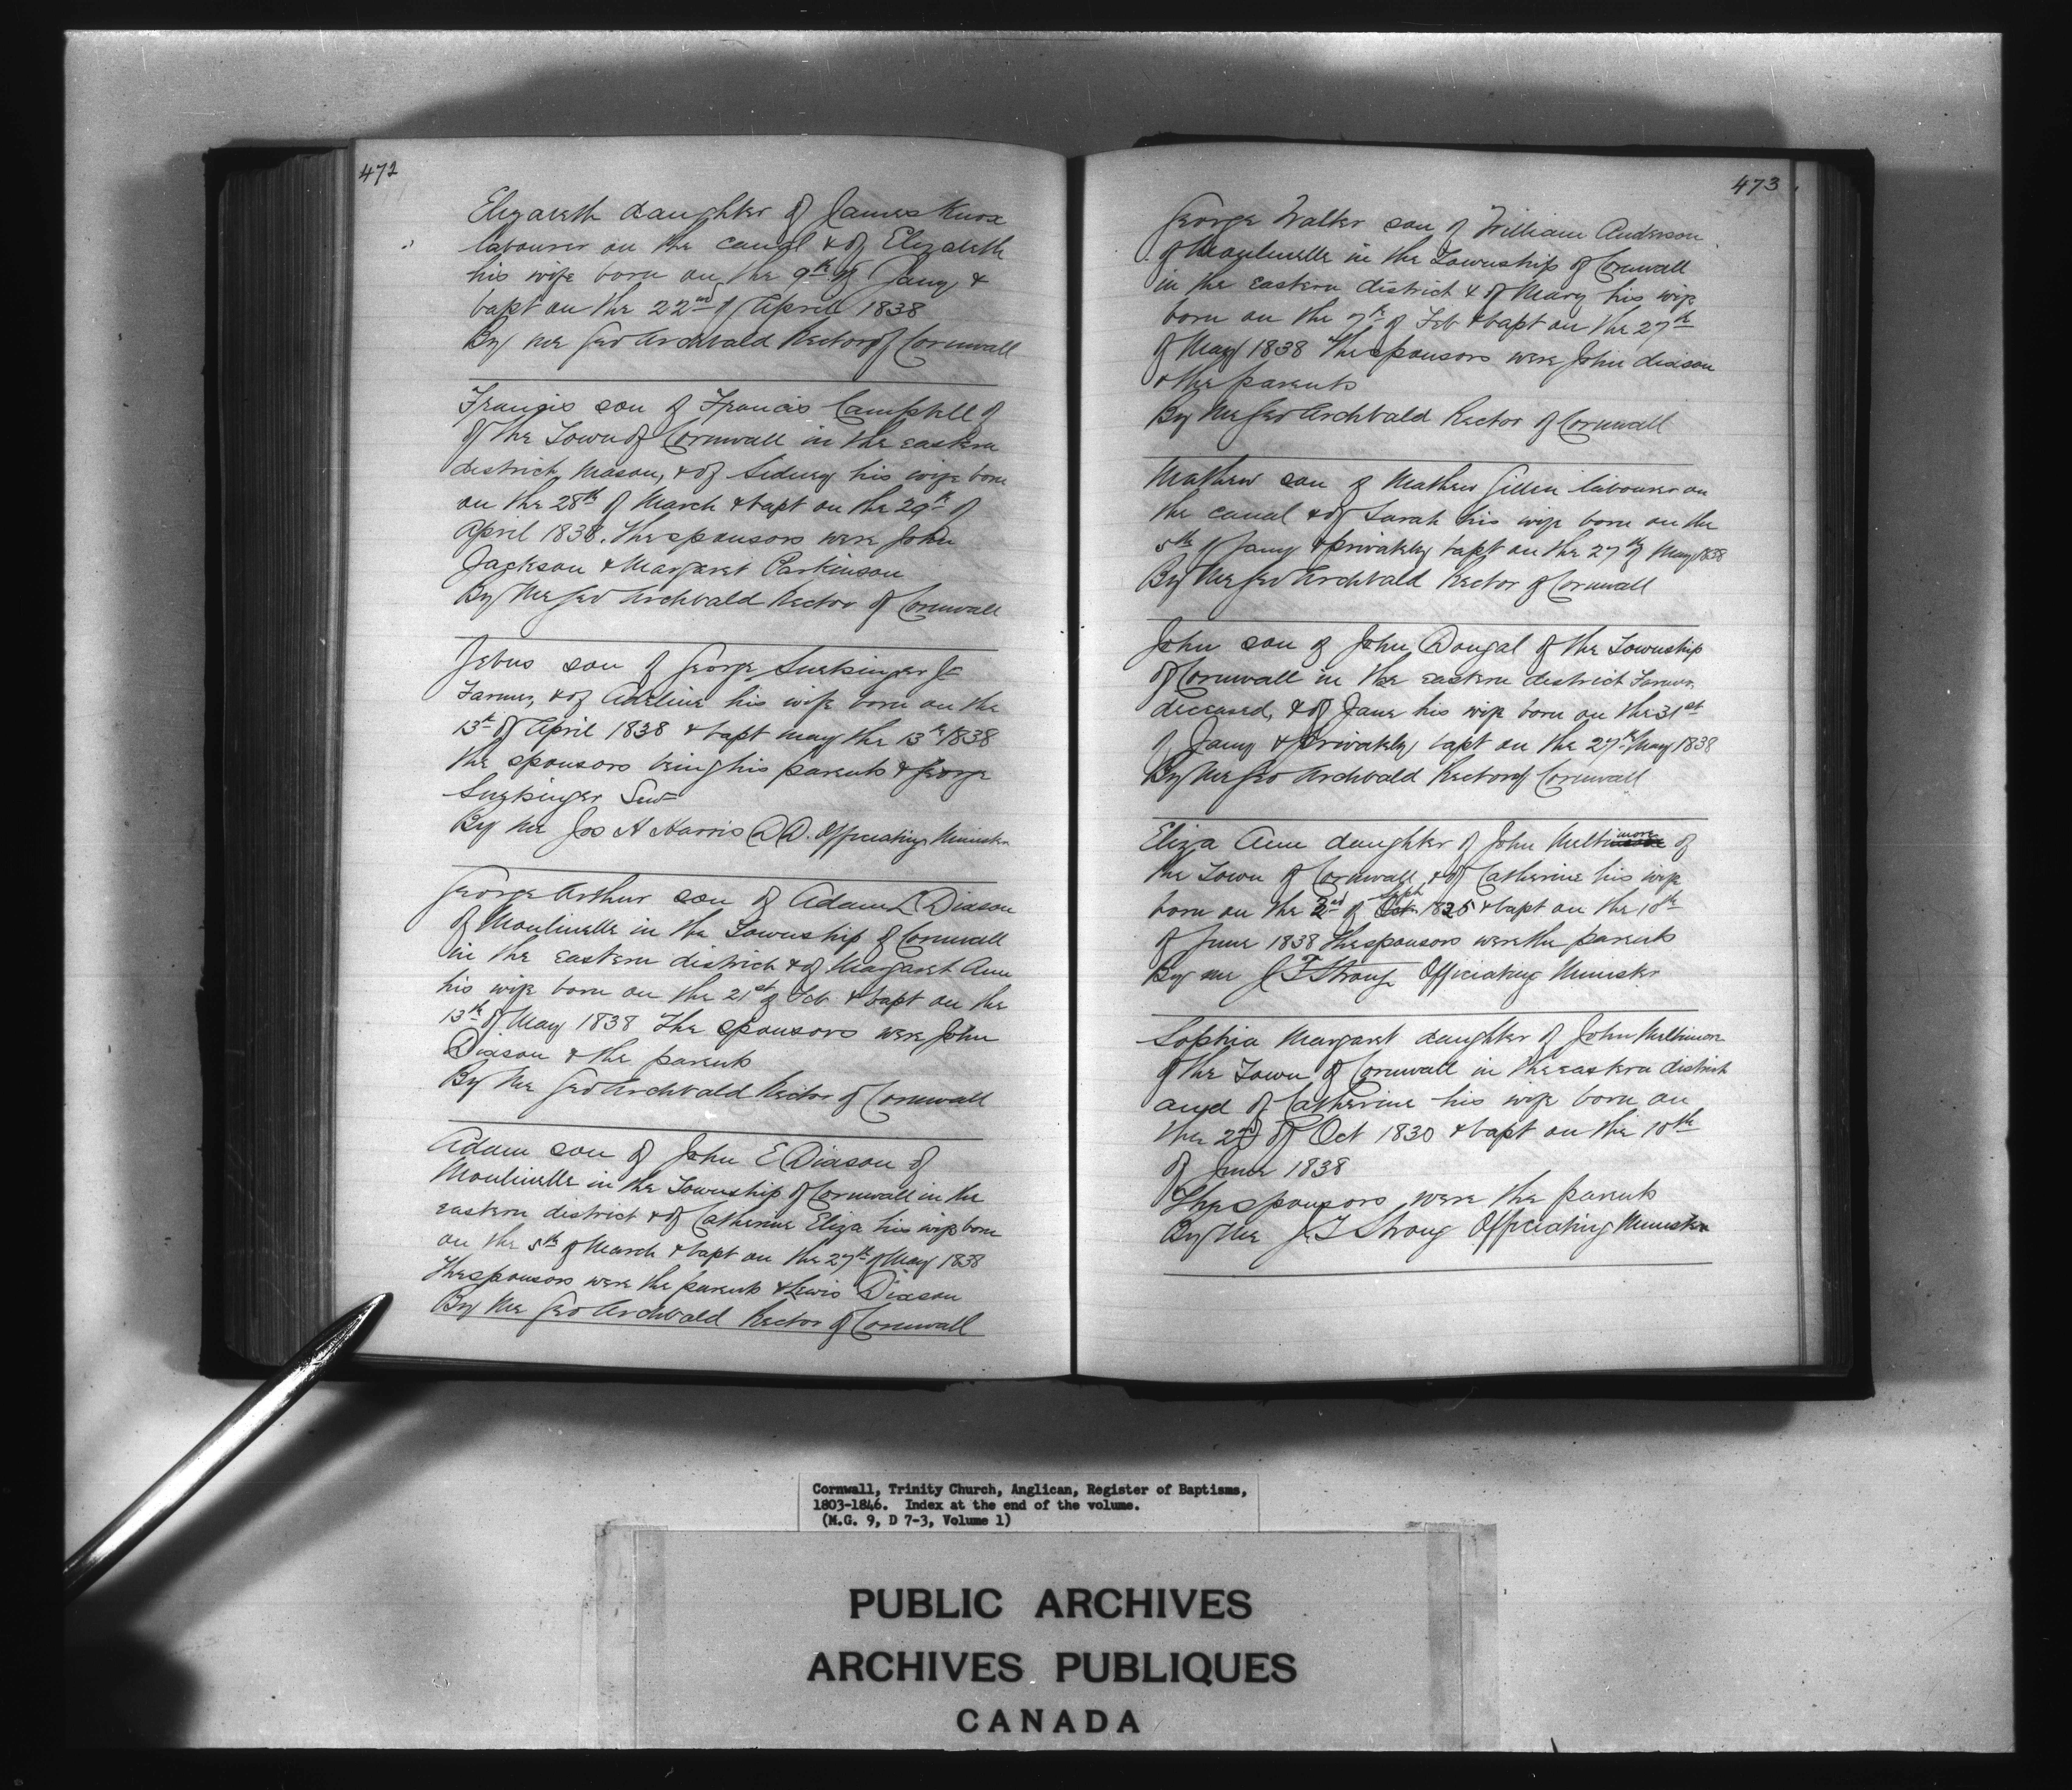 472
Elizabeth daughter of James Knox
labourer on the canal & of Elizabeth
his wife born on the 9th of Jany &
bapt on the 22nd of April 1838
By me Geo Archbald Rector of Cornwall
Francis son of Francis Campbell of
of the Town of Cornwall in the eastern
district, Mason, & of Sidney his wife born
on the 28th of March & bapt on the 29th of
April 1838. The sponsors were John
Jackson & Margaret Parkinson
By Me Geo Archbald Rector of Cornwall
Jebus son of George Snetsinger Jr
Farmer, & of Adeline his wife born on the
13th of April 1838 & bapt May the 13th 1838
the sponsors being his parents & George
Snetsinger Senr
By me Jos H Harris D.D. Officiating Minister
George Arthur son of Adam L Dixson
of Moulinelle in the Township of Cornwall
in the eastern district & of Margaret Ann
his wife born on the 21st of Feb & bapt on the
13th of May 1838 The sponsors were John
Dixson & the parents
By Me Geo Archbald Rector of Cornwall
Adam son of John E Dixson of
Moulinelle in the Township of Cornwall in the
eastern district & of Catherine Eliza his wife born
on the 5th of March & bapt on the 27th of May 1838
The sponsors were the parents & Lewis Dixson
By Me Geo Archbald Rector of Cornwall
473
George Walter son of William Anderson
of Moulinelle in the Township of Cornwall
in the eastern district & of Mary his wife
born on the 7th of Feb & bapt on the 27th
of May 1838 The sponsors were John dixson
& the parents
By Me Geo Archbald Rector of Cornwall
Mathew son of Mathew Gillin labourer on
the canal & of Sarah his wife born on the
5th of Jany & privately bapt on the 27th of May 1838
By Me Geo Archbald Rector of Cornwall
John son of John Dougal of the Township
of Cornwall in the eastern district Farmer
deceased, & of Jane his wife born on the 31st
of Jany & privately bapt on the 27th May 1838
By Me Geo Archbald Rector of Cornwall
Eliza Ann daughter of John Multimore of
the Town of Cornwall & of Catherine his wife
born on the 2nd of Oct Sept 1825 & bapt on the 10th
of June 1838 The sponsors were the parents
By me J T Strong Officiating Minister
Sophia Margaret daughter of John Multimore
of the Town of Cornwall in the eastern district
and of Catherine his wife born on
the 2nd of Oct 1830 & bapt on the 10th
of June 1838
The sponsors were the parents
By Me J T Strong Officiating Minister
Cornwall, Trinity Church, Anglican, Register of Baptisms,
1803-1846. Index at the end of the volume.
(M.G. 9, D 7-3, Volume 1)
PUBLIC ARCHIVES
ARCHIVES PUBLIQUES
CANADA